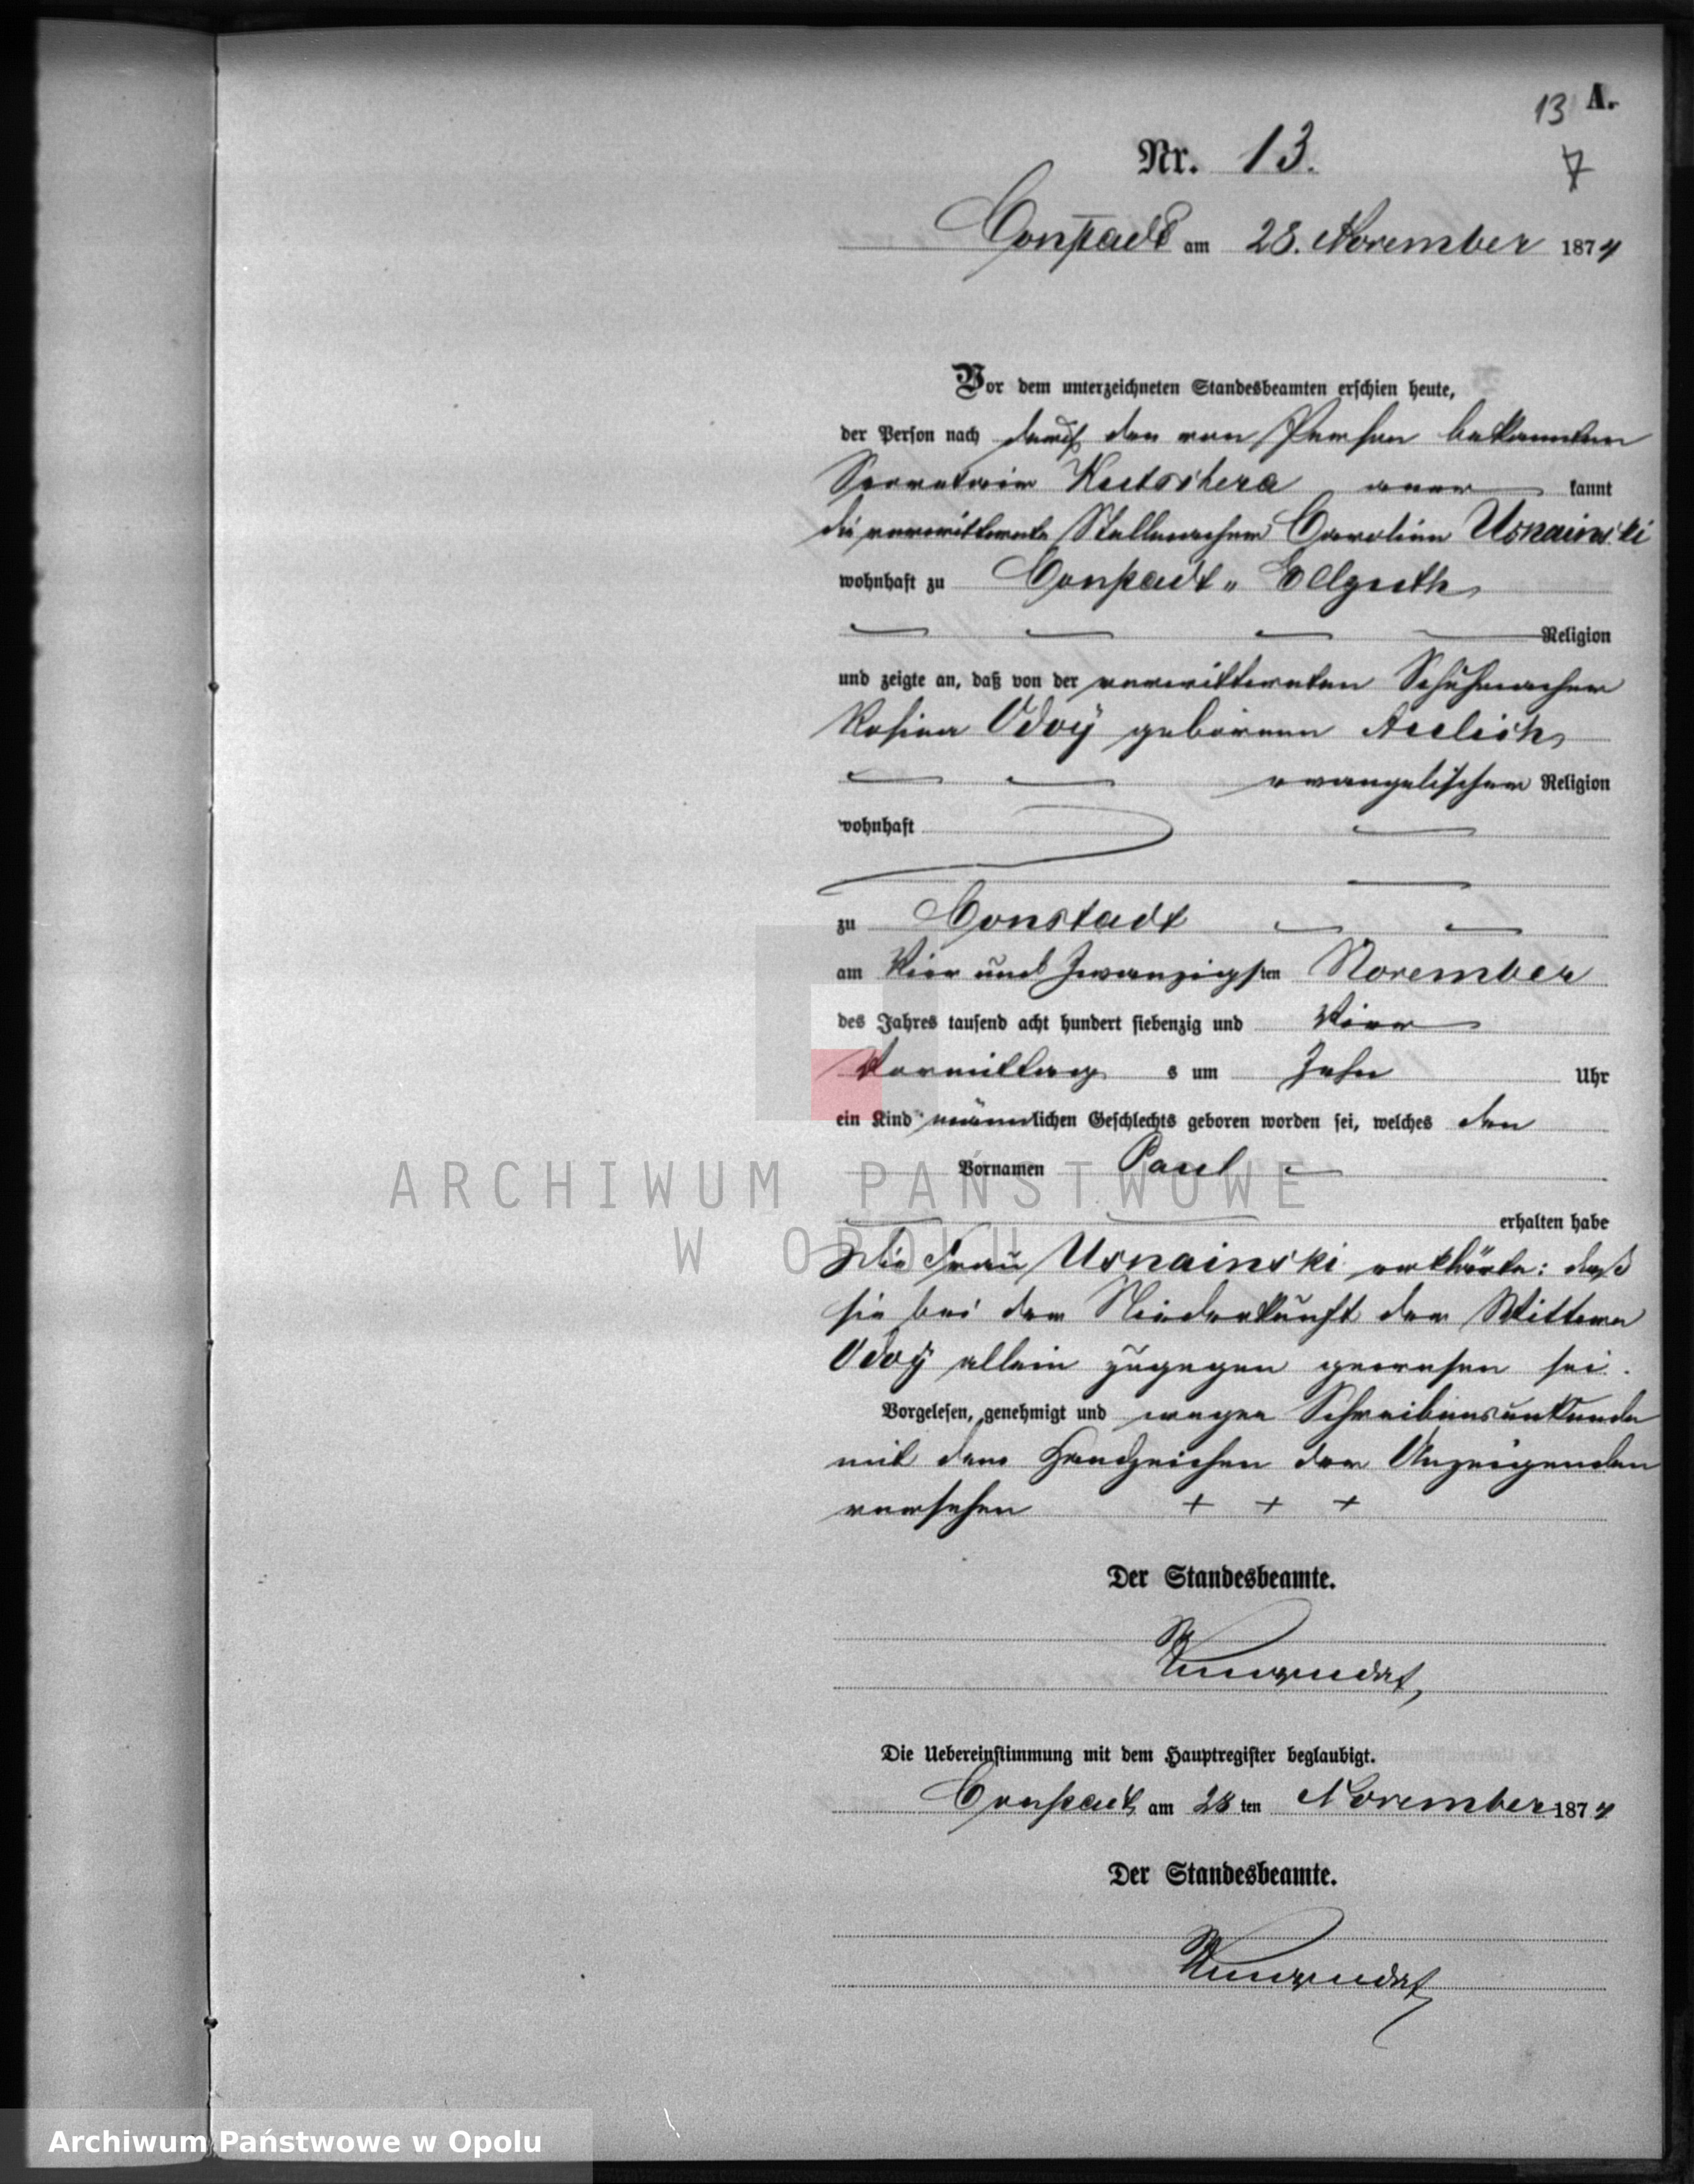 13 A.
7
Nr. 13.
Constadt am 28. November 1874
Vor dem unterzeichneten Standesbeamten erschien heute,
der Person nach durch den von Person bekannten
Secretair Kutschera aner kannt
die verwittwete Stellmacher Caroline Usnainski
wohnhaft zu Constadt-Ellguth
Religion
und zeigte an, daß von der verwittweten Schuhmacher
Rosina Odoÿ geborenen
evangelischer Religion
wohnhaft
zu Constadt
am Vier und Zwanzigsten November
des Jahres tausend acht hundert siebenzig und Vier
Vormittag s um Zehn Uhr
ein Kind männlichen Geschlechts geboren worden sei, welches den
Vornamen Paul
erhalten habe
Die Frau Usnainski erklärte: daß
sie bei der Niederkunft der Wittwe
Odoÿ allein zugegen gewesen sei.
Vorgelesen, genehmigt und wegen Schreibensunkunde
mit dem Handzeichen der Anzeigenden
versehen + + +
Der Standesbeamte.
Die Uebereinstimmung mit dem Hauptregister beglaubigt.
Constadt am 28 ten November 1874
Der Standesbeamte.
ARCHIWUM PAŃSTWOWE
W OPOLU
Archiwum Państwowe w Opolu